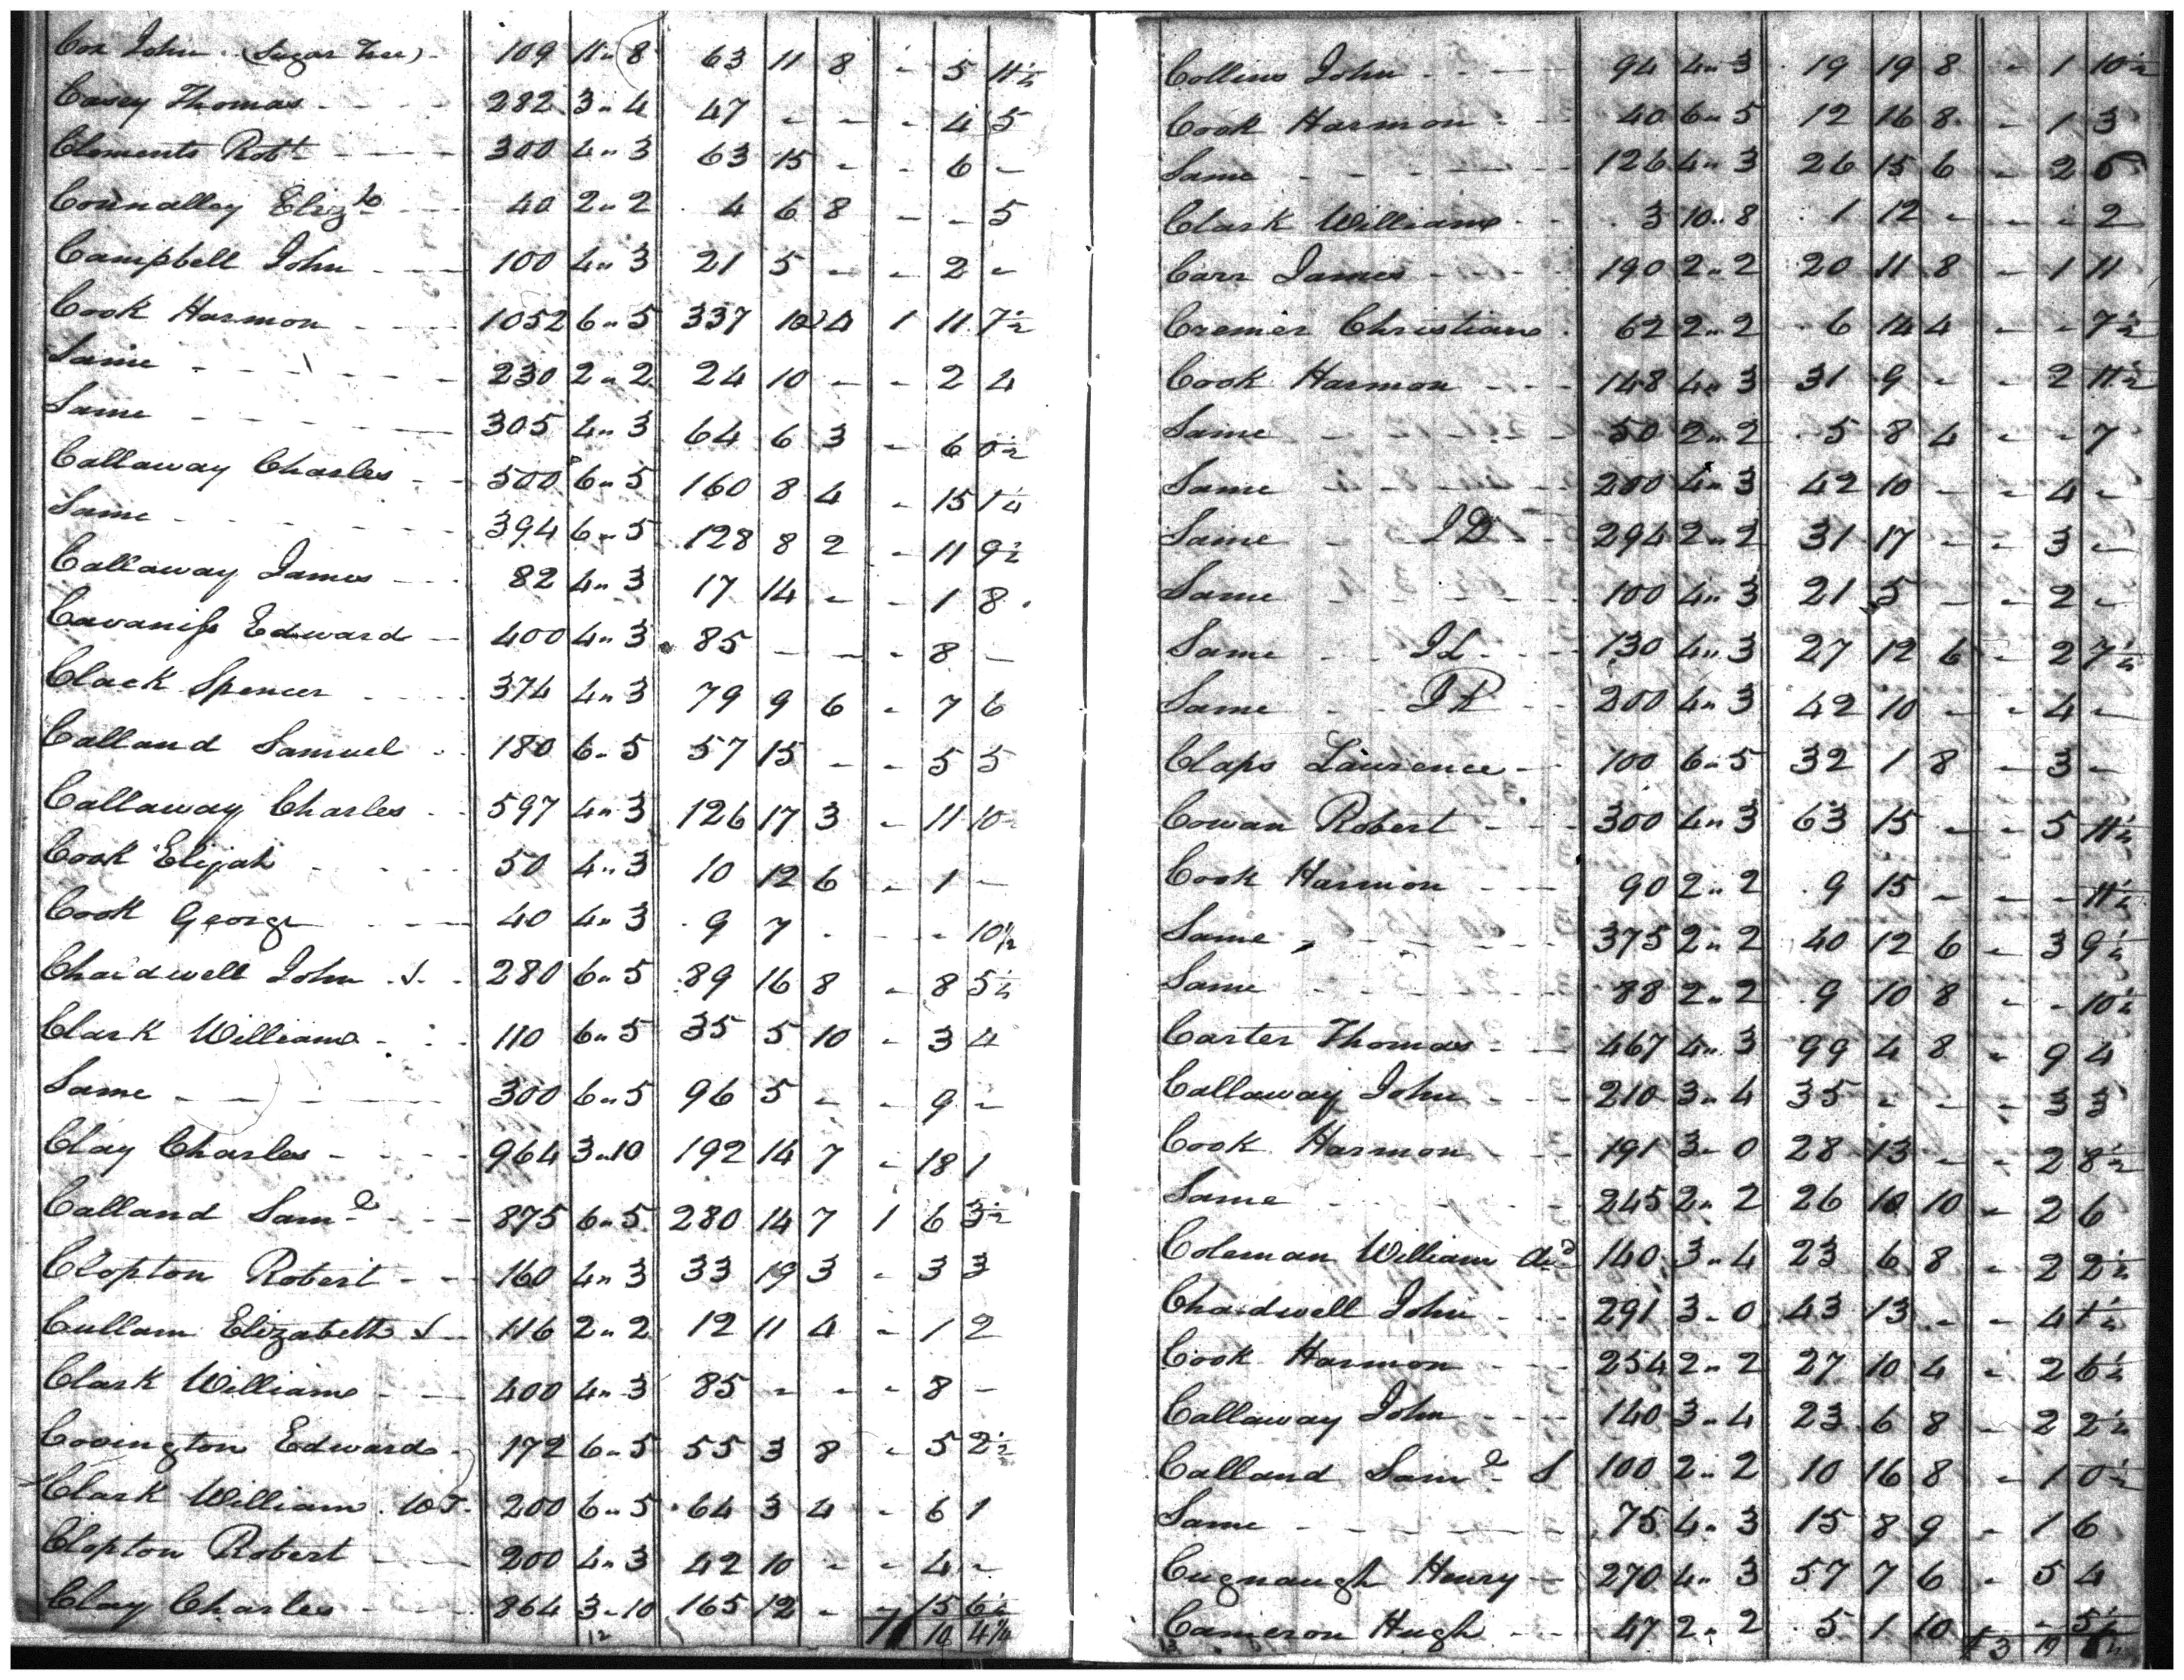 Cox John (Sugar Tree) - 109 11 " 8 63 11 8 - 5 11½
Casey Thomas - - - 282 3 " 4 47 - - - 4 5
Clements Robt - - - 300 4 " 3 63 15 - - 6 -
Connalley Elizth - - 40 2 " 2 4 6 8 - - 5
Campbell John - - - 100 4 " 3 21 5 - - 2 -
Cook Harmon - - - 1052 6 " 5 337 10 4 1 11 7½
Same - - - - - 230 2 " 2 24 10 - - 2 4
Same - - - - - 305 4 " 3 64 6 3 - 6 0½
Callaway Charles - - 500 6 " 5 160 8 4 - 15 1¼
Same - - - - - 394 6 " 5 128 8 2 - 11 9½
Callaway James - - - 82 4 " 3 17 14 - - 1 8
Cavaniss Edward - 400 4 " 3 85 - - - 8 -
Clack Spencer - - - 374 4 " 3 79 9 6 - 7 6
Calland Samuel - - 180 6 " 5 57 15 - - 5 5
Callaway Charles - - 597 4 " 3 126 17 3 - 11 10
Cook Elijah - - - 50 4 " 3 10 12 6 - 1 -
Cook George - - - 40 4 " 3 9 7 - - - 10½
Chaidwell John . S. . 280 6 " 5 89 16 8 - 8 5½
Clark William - - - 110 6 " 5 35 5 10 - 3 4
Same - - - - - 300 6 " 5 96 5 - - 9 -
Clay Charles - - - 964 3 " 10 192 14 7 - 18 1
Calland Saml - - - 875 6 " 5 280 14 7 1 6 3½
Clopton Robert - - 160 4 " 3 33 19 3 - 3 3
Cullam Elizabeth S - 116 2 " 2 12 11 4 - 1 2
Clark William - - 400 4 " 3 85 - - - 8 -
Covington Edward - 172 6 " 5 55 3 8 - 5 2½
Clark William . WT. 200 6 " 5 64 3 4 - 6 1
Clopton Robert - - 200 4 " 3 42 10 - - 4 -
Clay Charles - - - 864 3 " 10 165 12 - - 15 6½
12 7 10 4¼
Collins John - - - 94 4 " 3 19 19 8 - 1 10½
Cook Harmon - - - 40 6 " 5 12 16 8 - 1 3
Same - - - - - 126 4 " 3 26 15 6 - 2 6
Clark William - - 3 10 " 8 1 12 - - - 2
Carr James - - - 190 2 " 2 20 11 8 - 1 11
Cremer Christian . 62 2 " 2 6 14 4 - - 7½
Cook Harmon - - - 148 4 " 3 31 9 - - 2 11½
Same - - - - - 50 2 " 2 5 8 4 - - 7
Same - - - - - 200 4 " 3 42 10 - - 4 -
Same - - ID - - 294 2 " 2 31 17 - - 3 -
Same - - - - - 100 4 " 3 21 5 - - 2 -
Same - - IL - - 130 4 " 3 27 12 6 - 2 7½
Same - - IR - - 200 4 " 3 42 10 - - 4 -
Claps Laurence - - 100 6 " 5 32 1 8 - 3 -
Cowan Robert - - - 300 4 " 3 63 15 - - 5 11½
Cook Harmon - - - 90 2 " 2 9 15 - - - 11½
Same - - - - - 375 2 " 2 40 12 6 - 3 9½
Same - - - - - 88 2 " 2 9 10 8 - - 10½
Carter Thomas - - 467 4 " 3 99 4 8 - 9 4
Callaway John - - - 210 3 " 4 35 - - - 3 3
Cook Harmon - - - 191 3 " 0 28 13 - - 2 8½
Same - - - - - 245 2 " 2 26 10 10 - 2 6
Coleman William 140 3 " 4 23 6 8 - 2 2½
Chaidwell John - - 291 3 " 0 43 13 - - 4 1½
Cook Harmon - - - 254 2 " 2 27 10 4 - 2 6½
Callaway John - - - 140 3 " 4 23 6 8 - 2 2½
Calland Saml - S 100 2 " 2 10 16 8 - 1 0½
Same - - - - - 75 4 " 3 15 8 9 - 1 6
Cugnaugh Henry - 270 4 " 3 57 7 6 - 5 4
Cameron Hugh - - 47 2 " 2 5 1 10 - - 5½
13 £3 19